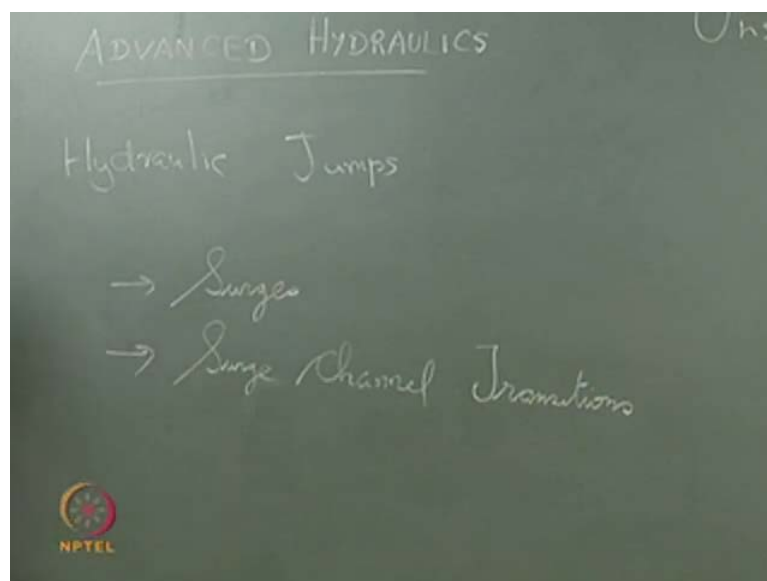 ADVANCED HYDRAULICS
Uns
Hydraulic Jumps
→ Surges
→ Surge Channel Transitions
NPTEL